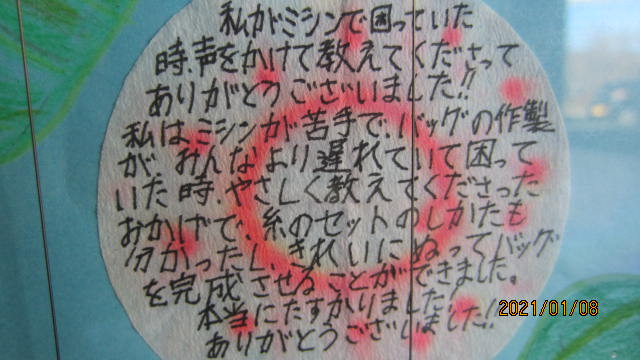 私がミシンで困っていた
時、声をかけて教えてくださって
ありがとうございました!!
私はミシンが苦手で、バッグの作製
が みんなより遅れていて困って
いた時、やさしく教えてくださった
おかげで、糸のセットのしかたも
分かったし、きれいにぬってバッグ
を完成させることができました。
本当にたすかりました!
ありがとうございました!!
2021/01/08